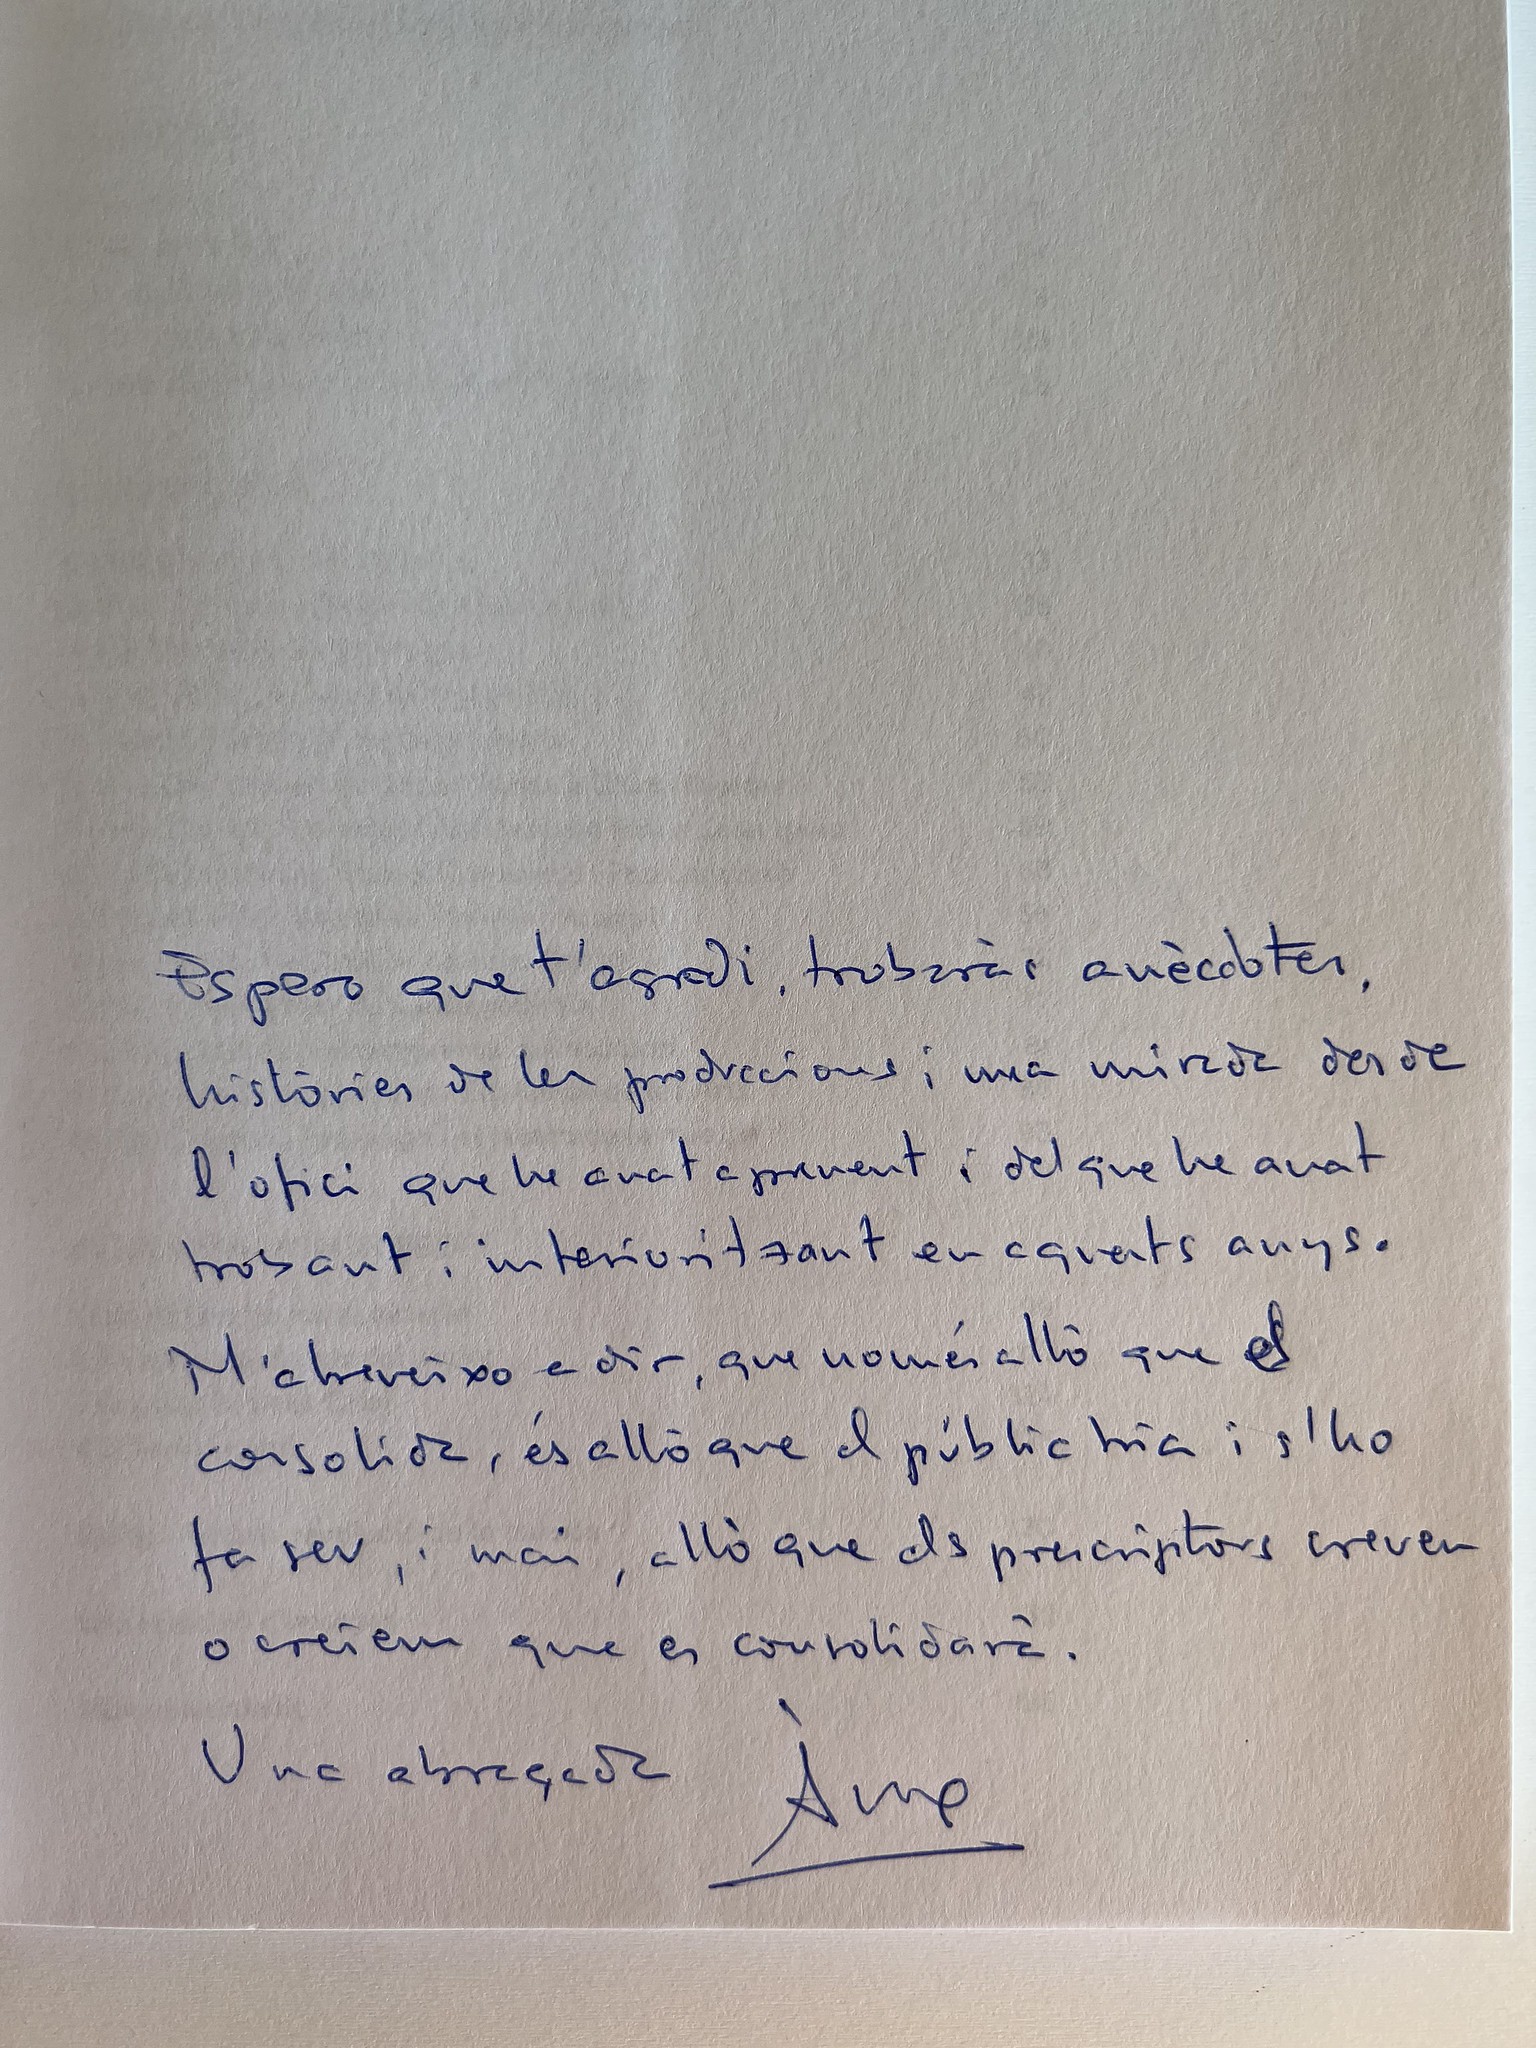 Espero que t'agradi, trobaràs anècdotes,
històries de les produccions i una mirada des de
l'ofici que he anat aprenent i del que he anat
trobant i interioritzant en aquests anys.
M'atreveixo a dir, que només allò que es
consolida, és allò que el públic tria i s'ho
fa seu, i mai, allò que els prescriptors creuen
o creiem que es consolidarà.
Una abraçada